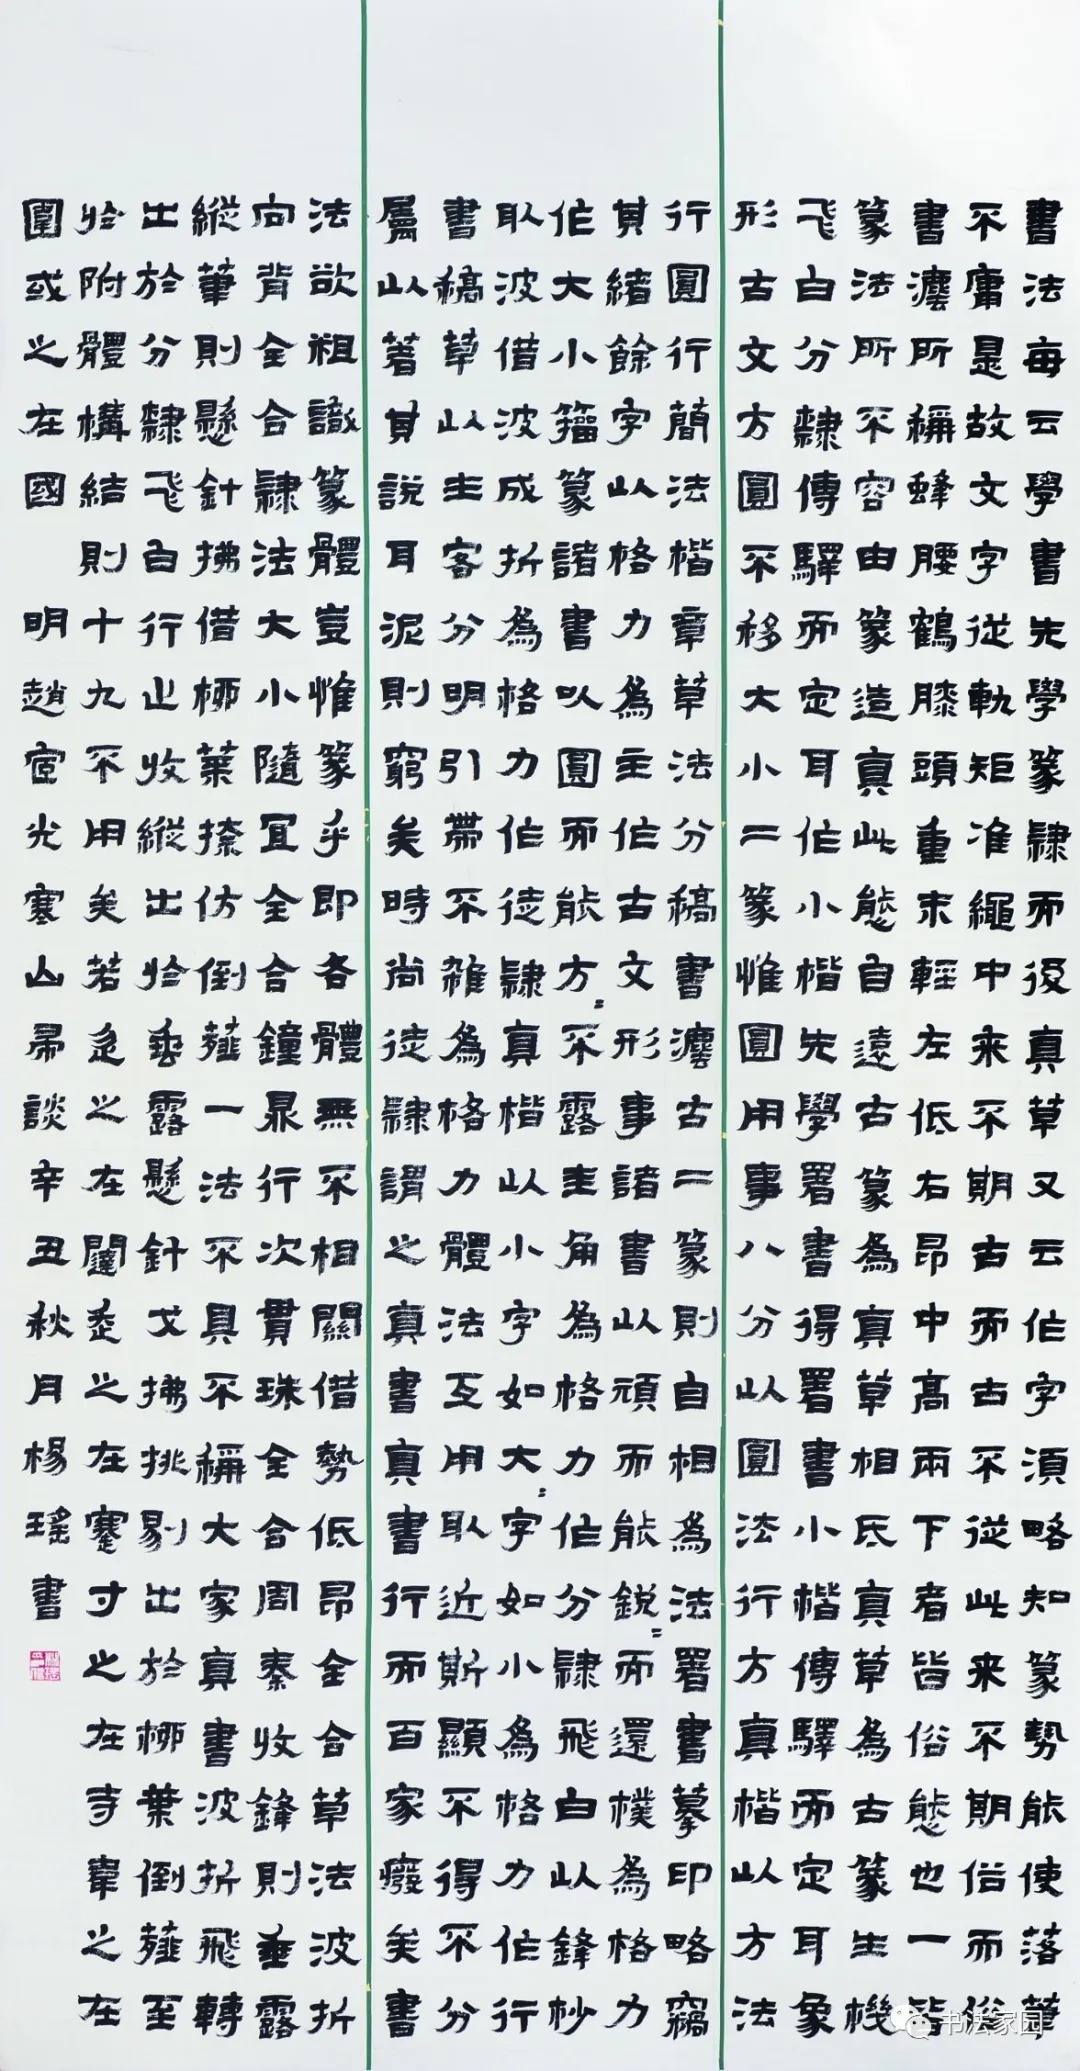 書法每云學書先學篆隸而後真草又云作字須略知篆勢能使落筆
不庸是故文字從軌矩准繩中来不期古而古不從此来不期俗而俗
書灋所稱蜂腰鶴膝頭重末輕左低右昂中高兩下者皆俗態也一皆
篆法所不容由篆造真此態自遠古篆為真草相氐真草為古篆生機
飛白分隸傳驛而定耳作小楷先學署書得署書小楷傳驛而定耳象
形古文方圓不移大小二篆惟圓用事八分以圓法行方真楷以方法
行圓行簡法楷章草法分稿書灋古二篆則自相為法署書摹印略竊
其緒餘字以格力為主作古文形事諸書以頑而能銳而還樸為格力
作大小籀篆諸書以圓而能方不露圭角為格力作分隸飛白以鋒杪
取波借波成折為格力作徒隸真楷以小字如大字如小為格力作行
書稿草以主客分明引帶不雜為格力體法互用取近斯顯不得不分
屬以著其說耳泥則窮矣時尚徒隸謂之真書真書行而百家癈矣書
法欲祖識篆體豈惟篆乎即各體無不相關借勢低昂全合草法波折
向背全合隸法大小隨宜全合鐘鼎行次貫珠全合周秦收鋒則垂露
縱筆則懸針拂借栁葉捺仿倒薤一法不具不稱大家真書波折飛轉
出於分隸飛白行止收縱出於垂露懸針戈拂挑剔出於栁葉倒薤至
於附體構結則十九不用矣若辵之在闥走之在蹇寸之在寺韋之在
圍或之在國 明趙宧光寒山帚談辛丑秋月楊瑤書
书法家园